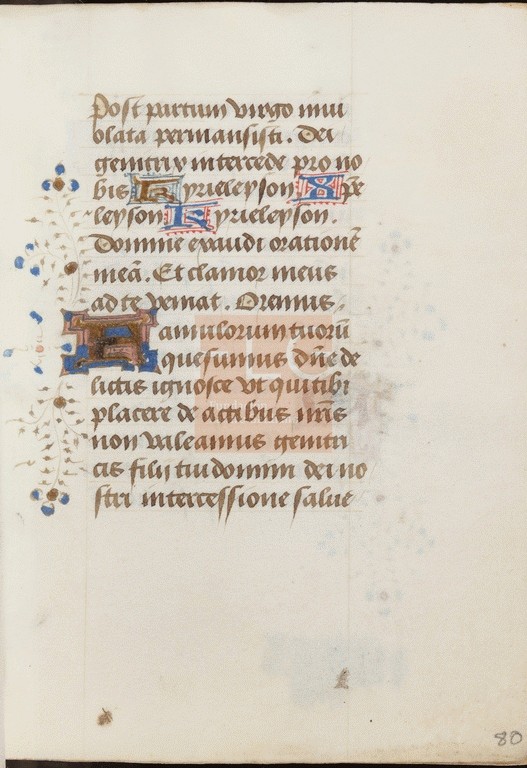 Post partum virgo invi
olata permansisti. Dei
genitrix intercede pro no
bis Kyrieleyson. Xpe
leyson Kyrieleyson.
Domine exaudi orationē
meā. Et clamor meus
ad te veniat. Oremus.
Famulorum tuorū
quesumus dn̄e de
lictis ignosce vt qui tibi
placere de actibus nr̄is
non valeamus genitri
cis filij tui domini dei no
stri intercessione salue
80